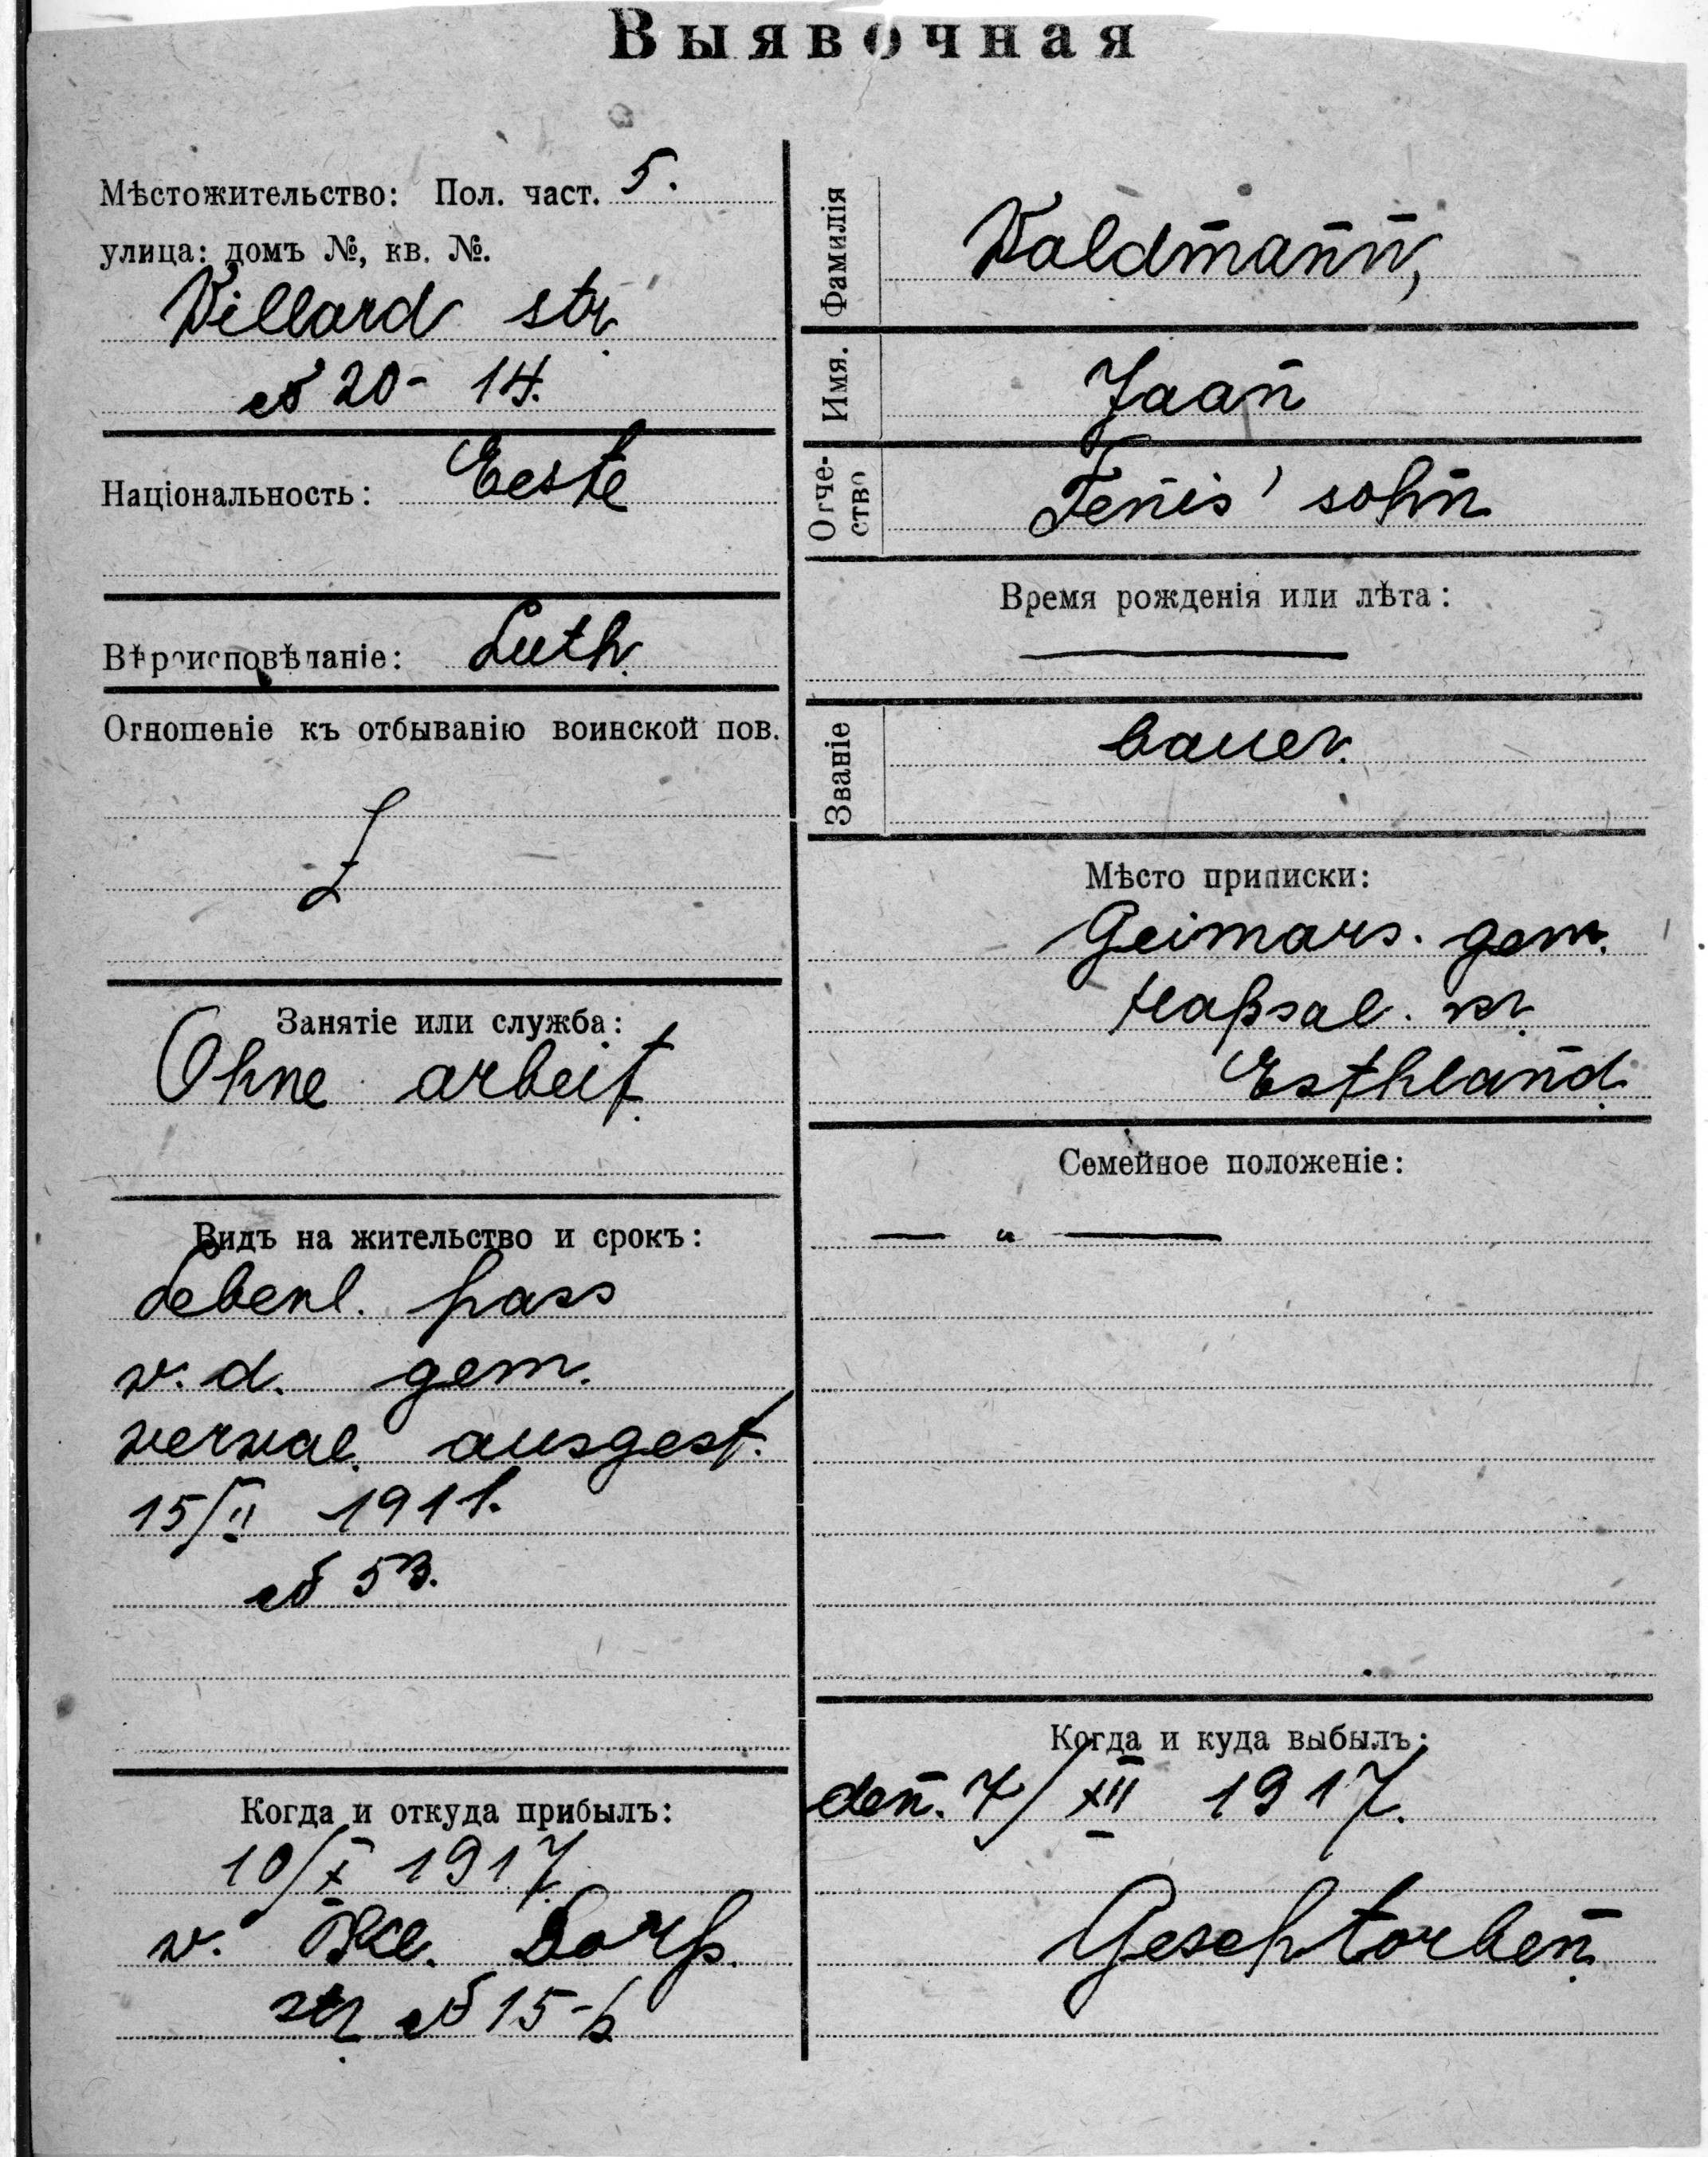 Выявочная
Мѣстожительство: Пол. част. 5.
улица: домъ №, кв. №.
Willard str.
№ 20 - 14.
Національность: Eeste
Вѣроисповѣданіе: Luth.
Отношеніе къ отбыванію воинской пов.
Занятіе или служба:
Ohne arbeit.
Видъ на жительство и срокъ:
Lebenl. pass
v. d. gem.
verval. ausgest.
15/II 1911.
№ 53.
Когда и откуда прибылъ:
10/X 1917.
v. Dorp.
str. № 15-
Фамилія Waldmann,
Имя. Jaan
Отче-
ство Tenis' sohn
Время рожденія или лѣта:
Званіе bauer.
Мѣсто приписки:
Geimars. gem.
Hapsal. kr.
Esthland.
Семейное положеніе:
— „ —
Когда и куда выбылъ:
den. 7/XII 1917.
Geschtorben.